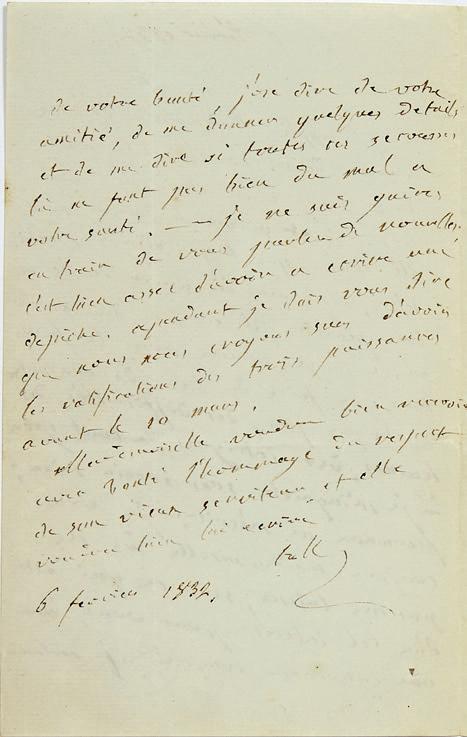 de votre bonté j'ose dire de votre
amitié, de me donner quelques details
et de me dire si toutes ces secousses
là ne font pas bien du mal a
votre santé. — je ne suis guères
en train de vous parler de nouvelles.
c'est bien assez d'avoir a ecrire une
depeche. cependant je dois vous dire
que nous nous croyons surs d'avoir
les ratifications des trois puissances
avant le 10 mars.
Mademoiselle voudra bien recevoir
avec bonté l'hommage du respect
de son vieux serviteur et elle
voudra bien lui ecrire
tall
6 fevrier 1832.